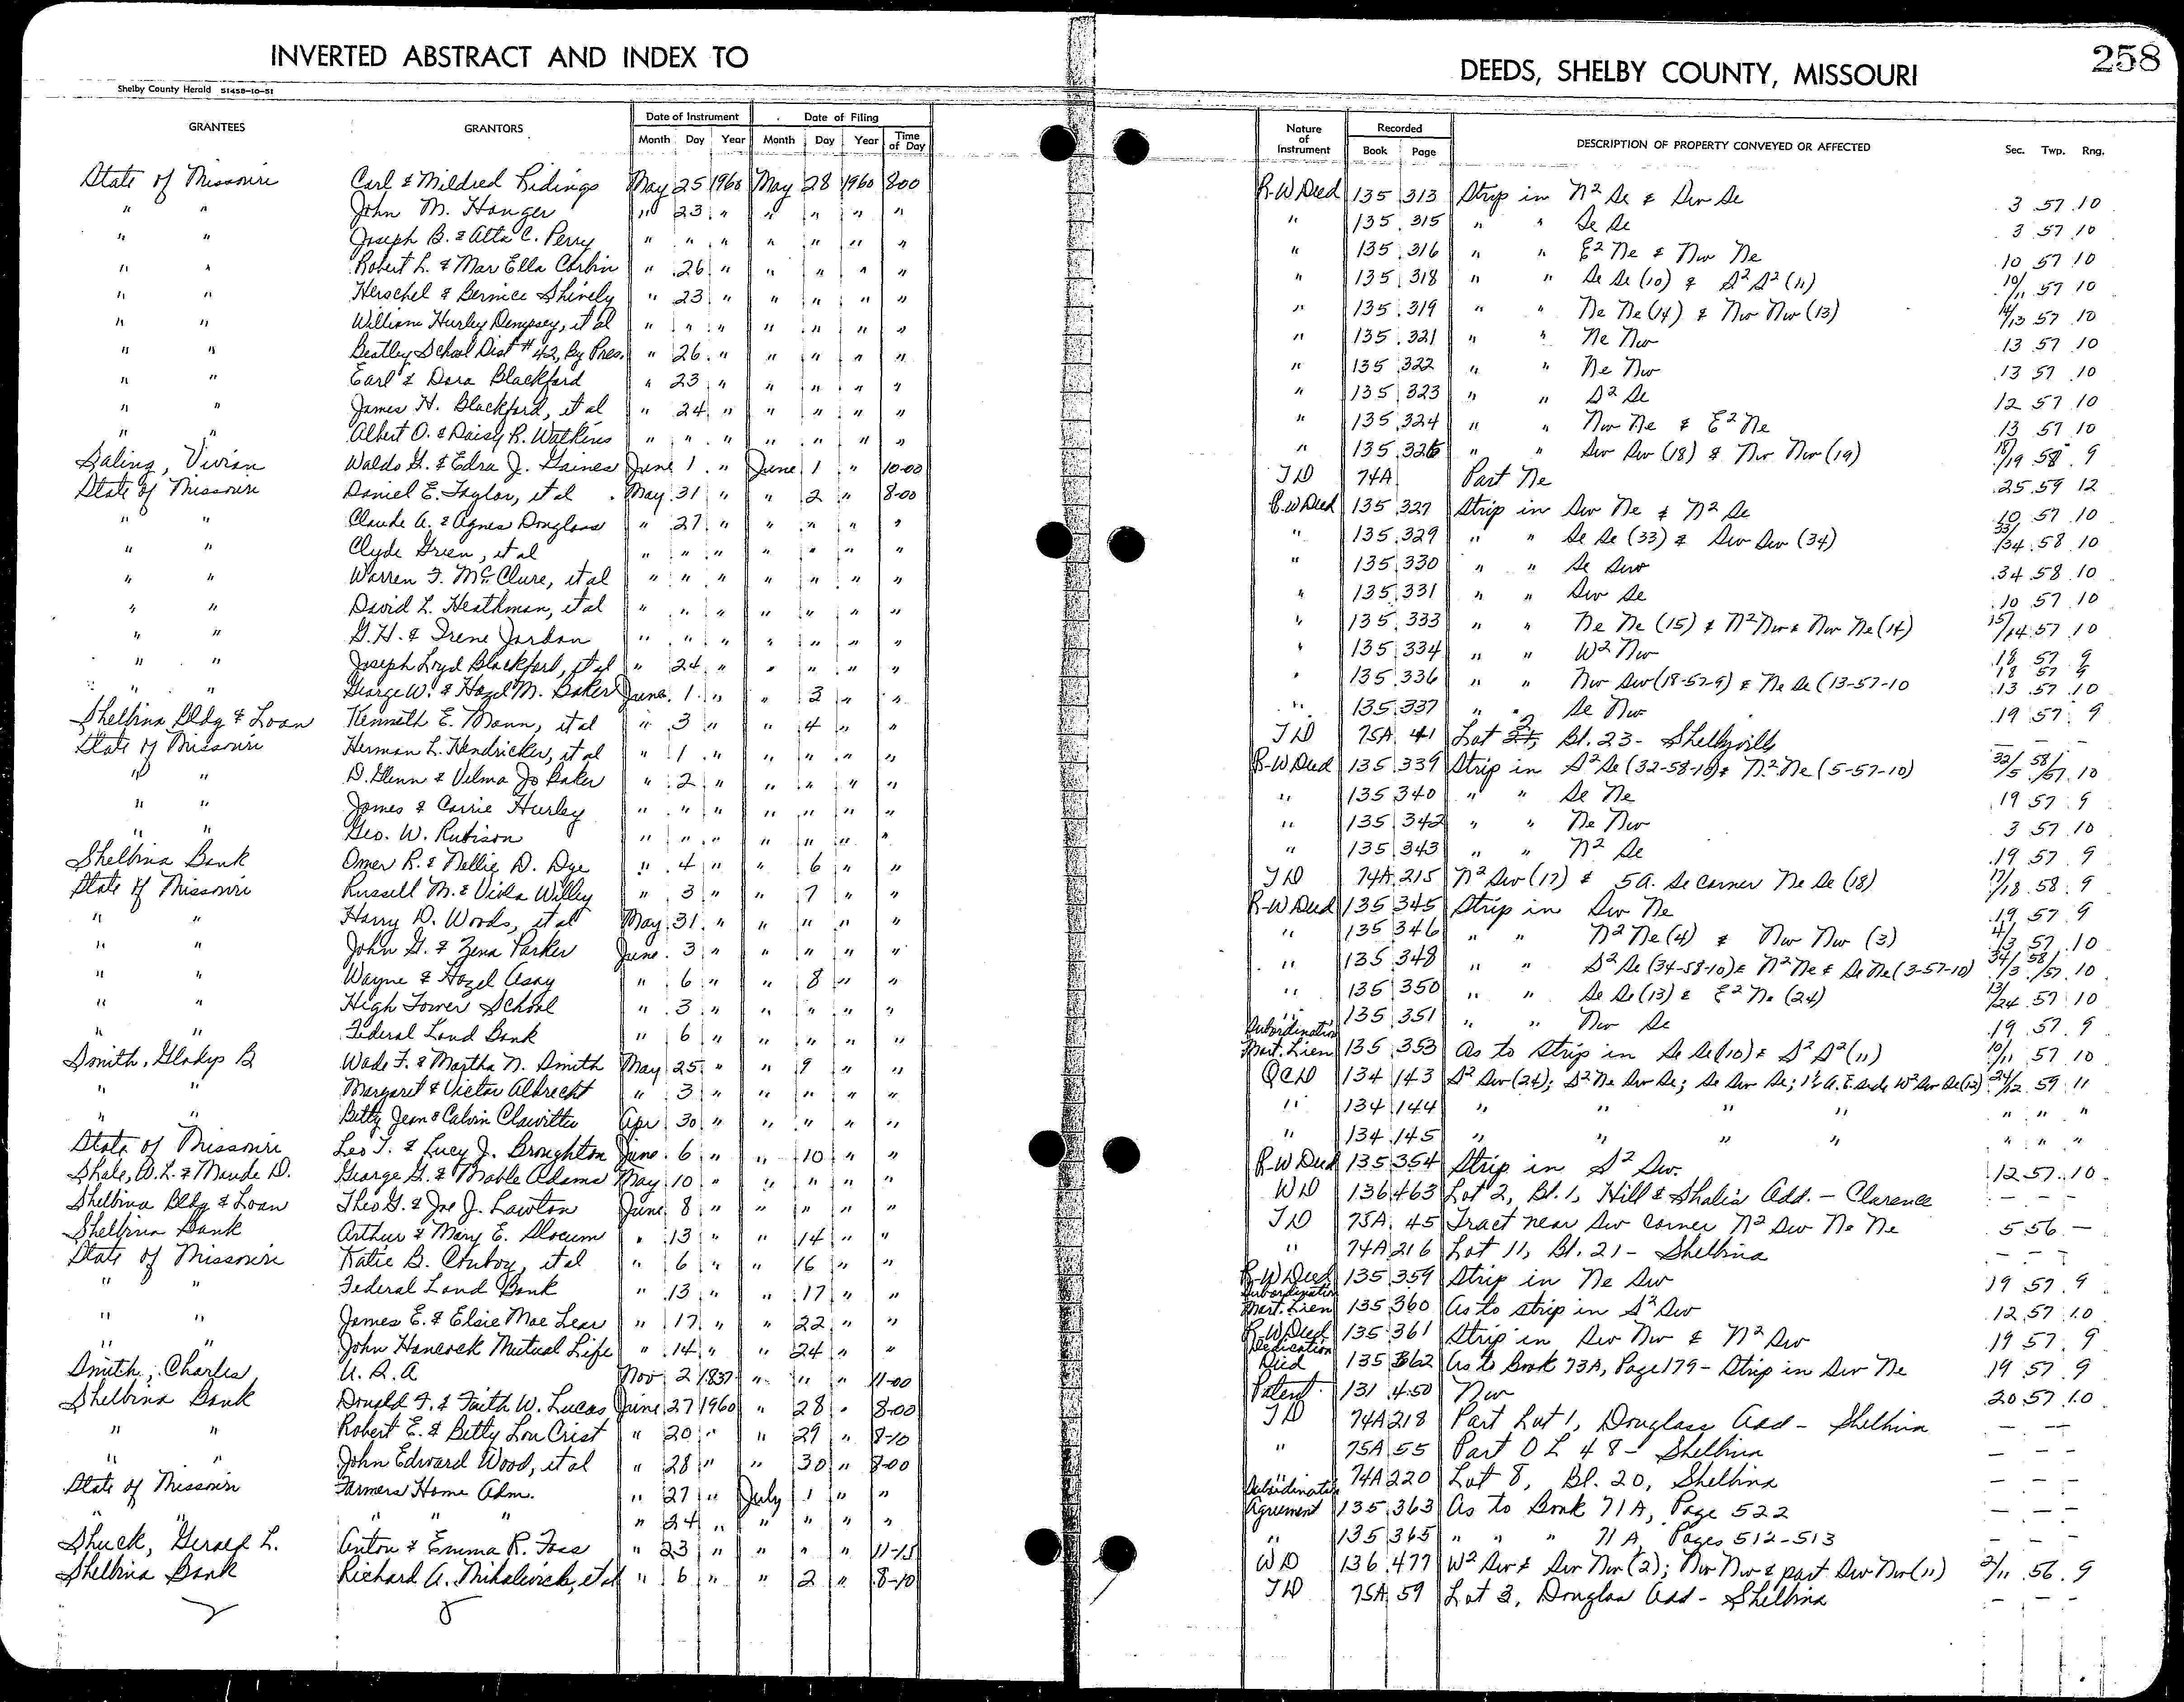 INVERTED ABSTRACT AND INDEX TO
Shelby County Herald 51458-10-51
GRANTEES GRANTORS Date of Instrument Date of Filing
Month Day Year Month Day Year Time of Day
State of Missouri Carl & Mildred Ridings May 25 1960 May 28 1960 8-00
" " John M. Hanger " 23 " " " " "
" " Joseph B. & Atta C. Perry " " " " " " "
" " Robert L. & Mar Ella Corbin " 26 " " " " "
" " Herschel & Bernice Shively " 23 " " " " "
" " William Hurley Dempsey, et al " " " " " " "
" " Beatley School Dist #42, By Pres. " 26 " " " " "
" " Earl & Dora Blackford " 23 " " " " "
" " James H. Blackford, et al " 24 " " " " "
" " Albert O. & Daisy R. Watkins " " " " " " "
Saling, Vivian Waldo G. & Edra J. Gaines June 1 " June 1 " 10-00
State of Missouri Daniel E. Taylor, et al May 31 " " 2 " 8-00
" " Claude A. & Agnes Douglass " 27 " " " " "
" " Clyde Green, et al " " " " " " "
" " Warren F. McClure, et al " " " " " " "
" " David L. Heathman, et al " " " " " " "
" " G.H. & Irene Jordan " " " " " " "
" " Joseph Loyd Blackford, et al " 24 " " " " "
" " George W. & Hazel M. Baker June 1 " " 3 " "
Shelbina Bldg & Loan Kenneth E. Mann, et al " 3 " " 4 " "
State of Missouri Herman L. Hendricker, et al " 1 " " " " "
" " D. Glenn & Velma Jo Baker " 2 " " " " "
" " James & Carrie Hurley " " " " " " "
" " Geo. W. Rubison " " " " " " "
Shelbina Bank Omer R. & Nellie D. Dye " 4 " " 6 " "
State of Missouri Russell M. & Viola Willey " 3 " " 7 " "
" " Harry D. Woods, et al May 31 " " " " "
" " John G. & Zena Parker June 3 " " " " "
" " Wayne & Hazel Asay " 6 " " 8 " "
" " High Tower School " 3 " " " " "
" " Federal Land Bank " 6 " " " " "
Smith, Gladys B Wade F. & Martha N. Smith May 25 " " 9 " "
" " Margaret & Victor Albrecht " 3 " " " " "
" " Betty Jean & Calvin Clawitter Apr 30 " " " " "
State of Missouri Leo T. & Lucy J. Broughton June 6 " " 10 " "
Shale, W.L. & Maude D. George G. & Mable Adams May 10 " " " " "
Shelbina Bldg & Loan Theo G. & Joe J. Lawton June 8 " " " " "
Shelbina Bank Arthur & Mary E. Slocum " 13 " " 14 " "
State of Missouri Katie B. Conboy, et al " 6 " " 16 " "
" " Federal Land Bank " 13 " " 17 " "
" " James E. & Elsie Mae Lear " 17 " " 22 " "
" " John Hancock Mutual Life " 14 " " 24 " "
Smith, Charles U. S. A Nov 2 1837 " " " 11-00
Shelbina Bank Donald F. & Faith W. Lucas June 27 1960 " 28 " 8-00
" " Robert E. & Betty Lou Crist " 20 " " 29 " 8-10
" " John Edward Wood, et al " 28 " " 30 " 8-00
State of Missouri Farmers Home Adm. " 27 " July 1 " "
" " " " " " 24 " " " " "
Shuck, Gerald L. Anton & Emma R. Foss " 23 " " " " 11-15
Shelbina Bank Richard A. Mihalevich, et al " 6 " " 2 " 8-10
DEEDS, SHELBY COUNTY, MISSOURI
258
Nature of Instrument Recorded DESCRIPTION OF PROPERTY CONVEYED OR AFFECTED Sec. Twp. Rng.
Book Page
R-W Deed 135 313 Strip in N² Se & Sw Se 3 57 10
" 135 315 " " Se Se 3 57 10
" 135 316 " " E² Ne & Nw Ne 10 57 10
" 135 318 " " Se Se (10) & S² S² (11) 10/11 57 10
" 135 319 " " Ne Ne (14) & Nw Nw (13) 14/13 57 10
" 135 321 " " Ne Nw 13 57 10
" 135 322 " " Ne Nw 13 57 10
" 135 323 " " S² Se 12 57 10
" 135 324 " " Nw Ne & E² Ne 13 57 10
" 135 326 " " Sw Sw (18) & Nw Nw (19) 18/19 58 9
TD 74A Part Ne 25 59 12
R-W Deed 135 327 Strip in Sw Ne & N² Se 10 57 10
" 135 329 " " Se Se (33) & Sw Sw (34) 33/34 58 10
" 135 330 " " Se Sw 34 58 10
" 135 331 " " Sw Se 10 57 10
" 135 333 " " Ne Ne (15) & N² Nw & Nw Ne (14) 15/14 57 10
" 135 334 " " W² Nw 18 57 9
" 135 336 " " Nw Sw (18-57-9) & Ne Se (13-57-10 18 57 9 13 57 10
" 135 337 " " Se Nw 19 57 9
TD 75A 41 Lot 2, Bl. 23 - Shelbyville — —
R-W Deed 135 339 Strip in S² Se (32-58-10) & N² Ne (5-57-10) 32/5 58/57 10
" 135 340 " " Se Ne 19 57 9
" 135 342 " " Ne Nw 3 57 10
" 135 343 " " N² Se 19 57 9
TD 74A 215 N² Sw (17) & 5A. Se corner Ne Se (18) 17/18 58 9
R-W Deed 135 345 Strip in Sw Ne 19 57 9
" 135 346 " " N² Ne (4) & Nw Nw (3) 4/3 57 10
" 135 348 " " S² Se (34-58-10) & N² Ne & Se Ne (3-57-10) 34/3 58/57 10
" 135 350 " " Se Se (13) & E² Ne (24) 13/24 57 10
" 135 351 " " Nw Se 19 57 9
Subordination Mort. Lien 135 353 As to strip in Se Se (10) & S² S² (11) 10/11 57 10
QCD 134 143 S² Sw (24); S² Ne Sw Se; Se Sw Se; 1½ A. E. side W² Sw Se (12) 24/12 59 11
" 134 144 " " " " " " "
" 134 145 " " " " " " "
R-W Deed 135 354 Strip in S² Sw. 12 57 10
WD 136 463 Lot 2, Bl. 1, Hill & Shale's Add. - Clarence — — —
TD 75A 45 Tract near Sw corner N² Sw Ne Ne 5 56 —
" 74A 216 Lot 11, Bl. 21 - Shelbina — — —
R-W Deed 135 359 Strip in Ne Sw 19 57 9
Subordination Mort. Lien 135 360 As to strip in S² Sw 12 57 10
R-W Deed 135 361 Strip in Sw Nw & N² Sw 19 57 9
Dedication Deed 135 362 As to Book 73A, Page 179 - Strip in Sw Ne 19 57 9
Patent 131 450 Nw 20 57 10
TD 74A 218 Part Lot 1, Douglass Add - Shelbina — —
" 75A 55 Part O L 48 - Shelbina — — —
" 74A 220 Lot 8, Bl. 20, Shelbina — — —
Subordination Agreement 135 363 As to Book 71A, Page 522 — — —
" 135 365 " " " 71A, Pages 512-513 — — —
WD 136 477 W² Sw & Sw Nw (2); Nw Nw & part Sw Nw (11) 2/11 56 9
TD 75A 59 Lot 3, Douglas Add - Shelbina — — —